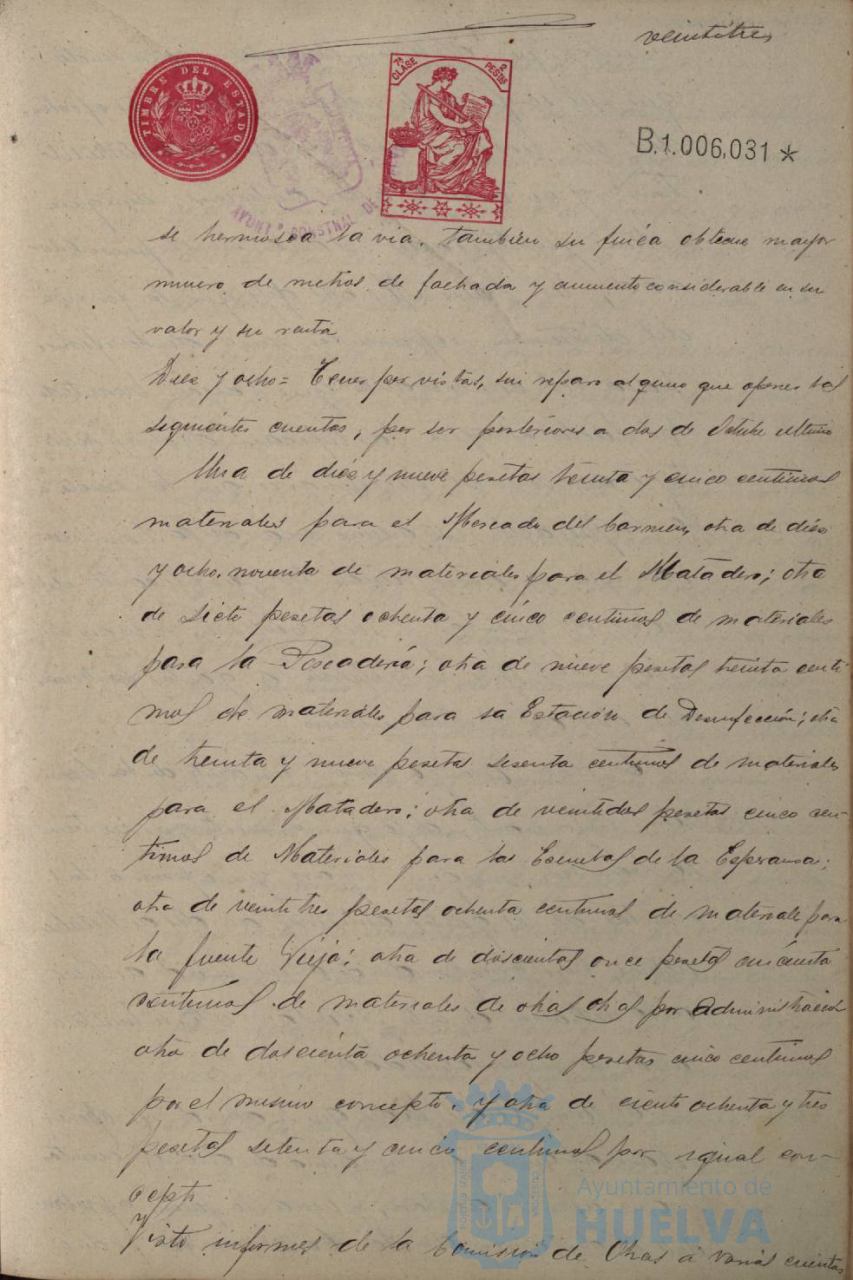 veintitres
TIMBRE DEL ESTADO
7ª CLASE 2 PESTAS
B.1.006,031 *
AYUNTº CONSTNAL DE
se hermosea la via, tambien su finca obtiene mayor
número de metros de fachada y aumento considerable en su
valor y su renta
Diez y ocho = Tener por vistas, sin reparo alguno que oponer las
siguientes cuentas, por ser posteriores a dos de Octubre último
Una de diez y nueve pesetas treinta y cinco centimos
materiales para el Mercado del Carmen, otra de diez
y ocho, noventa de materiales para el Matadero; otra
de siete pesetas ochenta y cinco centimos de materiales
para la Pescaderia; otra de nueve pesetas treinta centi-
mos de materiales para la Estación de Desinfección; otra
de treinta y nueve pesetas sesenta centimos de materiales
para el Matadero; otra de veintidos pesetas cinco cen-
timos de Materiales para las Escuelas de la Esperanza;
otra de veintitres pesetas ochenta centimos de materiale para
la fuente Vieja; otra de doscientas once pesetas cincuenta
centimos de materiales de otras obras por administracion
otra de doscienta ochenta y ocho pesetas cinco centimos
por el mismo concepto, y otra de ciento ochenta y tres
pesetas setenta y cinco centimos por igual con-
cepto
Visto informes de la Comisión de Obras á varias cuentas
Ayuntamiento de
HUELVA